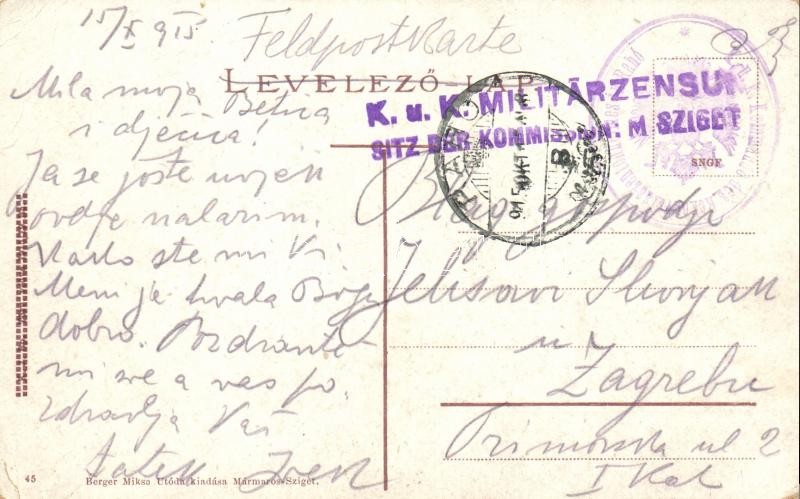 15/X 915
Feldpostkarte
LEVELEZŐ-LAP
K. u. K. MILITÄRZENSUR
SITZ DER KOMMISSION: M SZIGET
SNGE
Mila moja
i dječica!
Ja se još uvijek
ovdje nalazim.
Kako ste mi Vi
Meni je hvala Bogu
dobro. Pozdravite
mi sve a vas po-
zdravlja Vaš
tatek
Blag. gospodji
u
Zagrebu
Primorska ul 2
I Kat
45 Berger Miksa Utóda kiadása Mármaros-Sziget.